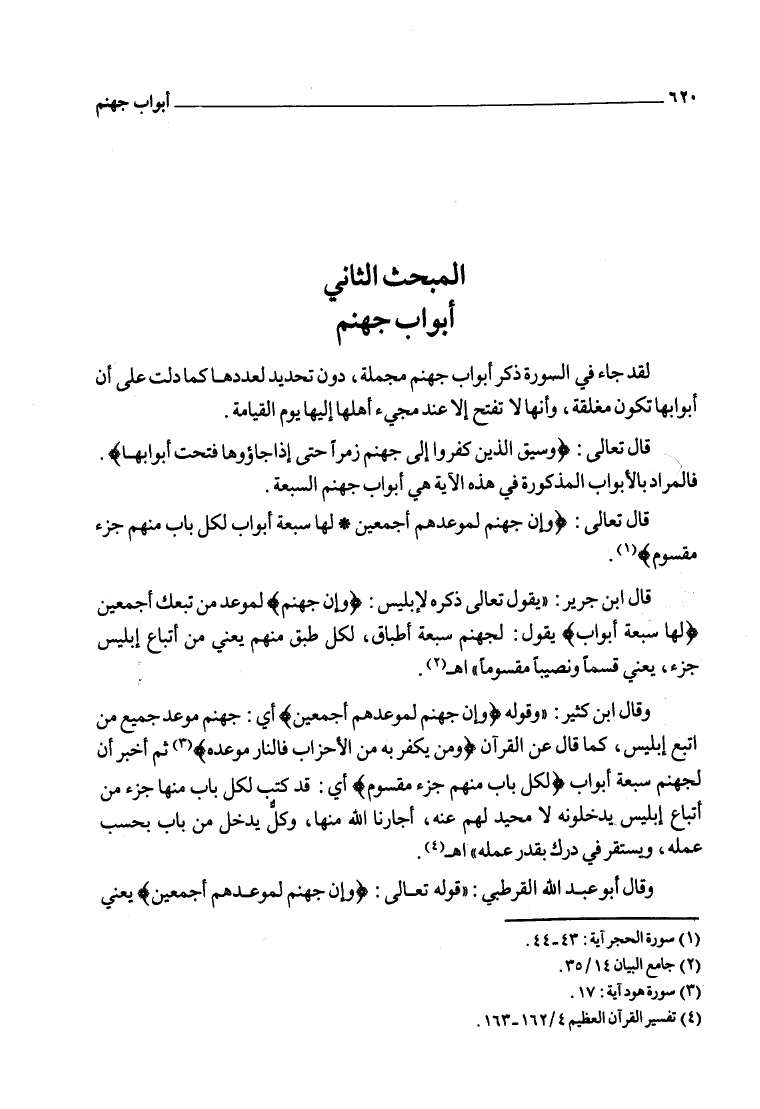 ٦٢٠ أبواب جهنم
المبحث الثاني
أبواب جهنم
لقد جاء في السورة ذكر أبواب جهنم مجملة، دون تحديد لعددها كما دلت على أن
أبوابها تكون مغلقة، وأنها لا تفتح إلا عند مجيء أهلها إليها يوم القيامة.
قال تعالى: ﴿وسيق الذين كفروا إلى جهنم زمراً حتى إذا جاؤوها فتحت أبوابها﴾.
فالمراد بالأبواب المذكورة في هذه الآية هي أبواب جهنم السبعة.
قال تعالى: ﴿وإن جهنم لموعدهم أجمعين * لها سبعة أبواب لكل باب منهم جزء
مقسوم﴾(١).
قال ابن جرير: «يقول تعالى ذكره لإبليس: ﴿وإن جهنم﴾ لموعد من تبعك أجمعين
﴿لها سبعة أبواب﴾ يقول: لجهنم سبعة أطباق، لكل طبق منهم يعني من أتباع إبليس
جزء، يعني قسماً ونصيباً مقسوماً» اهـ(٢).
وقال ابن كثير: «وقوله ﴿وإن جهنم لموعدهم أجمعين﴾ أي: جهنم موعد جميع من
اتبع إبليس، كما قال عن القرآن ﴿ومن يكفر به من الأحزاب فالنار موعده﴾(٣) ثم أخبر أن
لجهنم سبعة أبواب ﴿لكل باب منهم جزء مقسوم﴾ أي: قد كتب لكل باب منها جزء من
أتباع إبليس يدخلونه لا محيد لهم عنه، أجارنا الله منها، وكلٌّ يدخل من باب بحسب
عمله، ويستقر في درك بقدر عمله» اهـ(٤).
وقال أبو عبد الله القرطبي: «قوله تعالى: ﴿وإن جهنم لموعدهم أجمعين﴾ يعني
(١) سورة الحجر آية: ٤٣-٤٤.
(٢) جامع البيان ٣٥/١٤.
(٣) سورة هود آية: ١٧.
(٤) تفسير القرآن العظيم ١٦٢/٤-١٦٣.